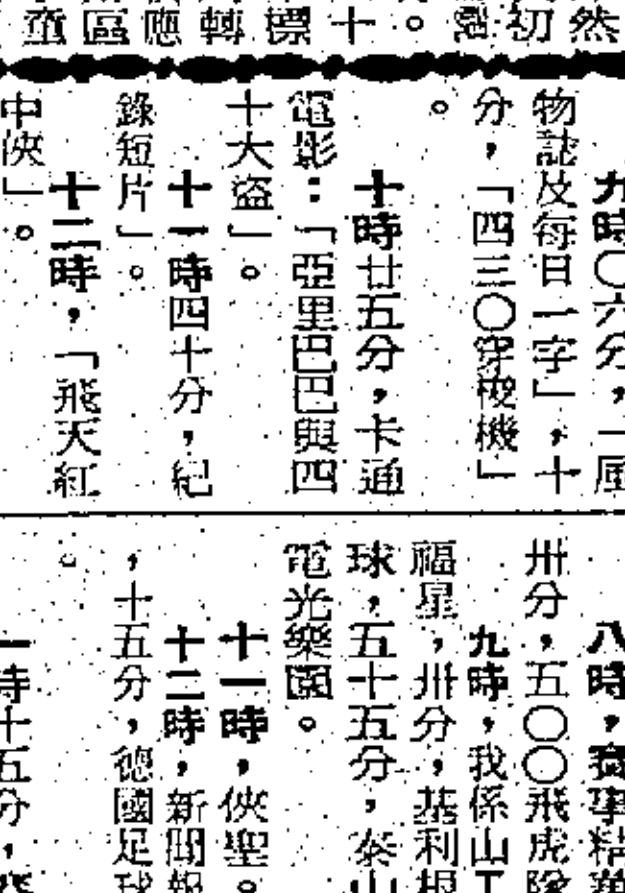 然
初
。
十
標
轉
應
區
童
九時〇六分，「風
物誌及每日一字」，十
分，「四三〇穿梭機」
。
十時廿五分，卡通
電影：「亞里巴巴與四
十大盜」。
十一時四十分，紀
錄短片」。
十二時，「飛天紅
中俠」。
八時，賽事精
卅分，五〇〇飛虎隊
九時，我係山
福星，卅分，基利
球，五十五分，泰山
電光樂園。
十一時，俠聖。
十二時，新聞報
，十五分，德國足球
。
一時十五分，